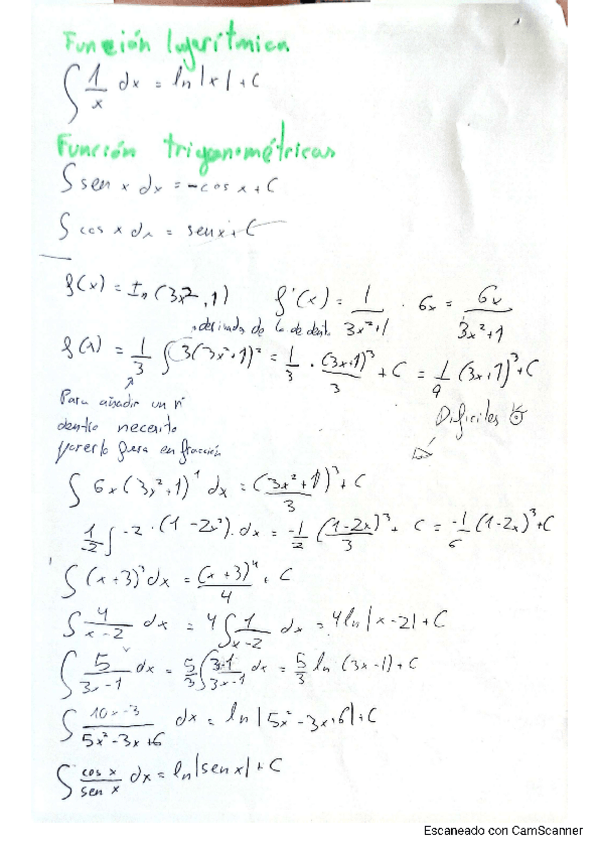 Función logarítmica
∫ 1/x dx = ln|x| + C
Función trigonométricas
∫ sen x dx = -cos x + C
∫ cos x dx = sen x + C
f(x) = Ln(3x²+1) f'(x) = 1/3x²+1 · 6x = 6x/3x²+1
derivada de lo de dent.
f(x) = 1/3 ∫ 3(3x+1)² = 1/3 · (3x+1)³/3 + C = 1/9 (3x+1)³ + C
Para añadir un nº
dentro necesito
ponerlo fuera en fracción
Difíciles
∫ 6x(3x²+1)¹ dx = (3x²+1)³/3 + C
1/2 ∫ -2·(1-2x²)·dx = -1/2 (1-2x)³/3 + C = -1/6 (1-2x)³ + C
∫ (x+3)³ dx = (x+3)⁴/4 + C
∫ 4/x-2 dx = 4 ∫ 1/x-2 dx = 4 ln|x-2| + C
∫ 5/3x-1 dx = 5/3 ∫ 3·1/3x-1 dx = 5/3 ln (3x-1) + C
∫ 10x-3/5x²-3x+6 dx = ln|5x²-3x+6| + C
∫ cos x/sen x dx = ln|sen x| + C
Escaneado con CamScanner